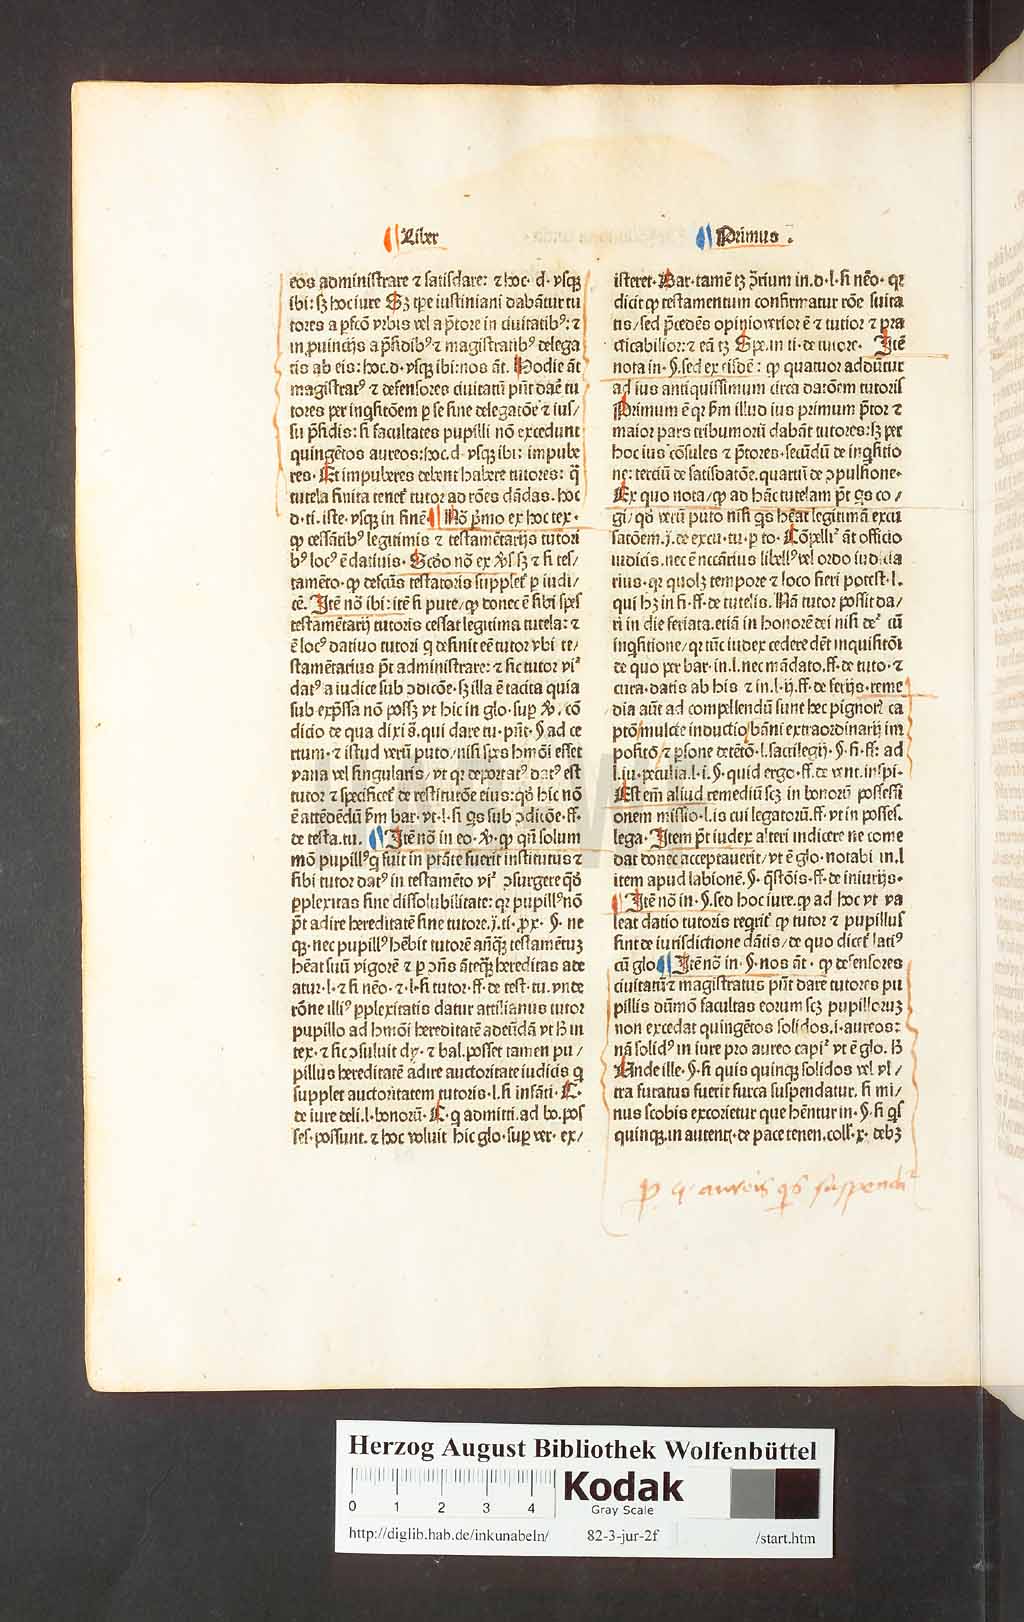 Liber
Primus .
eos administrare ⁊ satisdare: ⁊ hoc · d · vsqꝫ
ibi: sꝫ hoc iure Sꝫ tp̄e iustiniani dabant̄ur tu
tores a p̄fcō vrbis vel a p̄tore in ciuitatibꝰ: ⁊
in ꝓuincijs a p̄sidibꝰ ⁊ magistratibꝰ delega
tis ab eis: hoc · d · vsqꝫ ibi: nos āt. Hodie āt
magistratꝰ ⁊ defensores ciuitatū pn̄t daē tu
tores per inqsitōem ꝑ se sine delegatōē ⁊ ius/
su p̄sidis: si facultates pupilli nō excedunt
quingētos aureos: hoc · d · vsqꝫ ibi: impube
res · Et impuberes debent habere tutores: q̄
tutela finita tenet̄ tutor ad rōes dādas · hoc
d · ti · iste · vsqꝫ in finē Nō p̄mo ex hoc tex ·
ꝙ cessātibꝰ legitimis ⁊ testamētarijs tutori
bꝰ locꝰ ē datiuis · Scd̄o nō ex ℣si sꝫ ⁊ si tes/
tamēto · ꝙ defcūs testatoris supplet̄ ꝑ iudi/
cē. Itē nō ibi: itē si pure / ꝙ donec ē sibi spes
testamētarij tutoris cessat legitima tutela: ⁊
ē locꝰ datiuo tutori q definit eē tutor vbi te/
stamētarius p̄t administrare: ⁊ sic tutor vi
datꝰ a iudice sub ↄdicōe · sꝫ illa ē tacita quia
sub exp̄ssa nō possꝫ vt hic in glo · suꝑ ℣ · cō
dicio de qua dixi s̄. qui dare tu · pn̄t · §. ad ce
rtum · ⁊ istud verū puto / nisi spes hmōi esset
vana vel singularis / vt qr deportatꝰ datꝰ est
tutor ⁊ specificet̄ de restitutōe eius: qd̄ hic nō
ē attēdēdū ẜm bar · vt · l · si qs sub ↄditōe · ff ·
de testa. tu. Itē nō in eo · ℣ · ꝙ qn̄ solum
mō pupillꝰ q fuit in ptāte fuerit institutus ⁊
sibi tutor datꝰ in testamēto vi ↄsurgere qd̄
ꝑplexitas sine dissolubilitate: qr pupillꝰ nō
p̄t adire hereditatē sine tutore. j. ti · ꝓx · §. ne
qꝫ · nec pupillꝰ hēbit tutorē anq̄ꝫ testamētuꝫ
hēat suū vigorē ⁊ ꝑ ↄn̄s āteq̄ꝫ hereditas ade
atur · l · ⁊ si nēo · ⁊ · l · si tutor · ff · de test · tu. vnde
rōne illiꝰ ꝑplexitatis datur attilianus tutor
pupillo ad hmōi hereditatē adeūdā vt hꝫ in
tex · ⁊ sic ↄsuluit dy · ⁊ bal. posset tamen pu /
pillus hereditatē adire auctoritate iudicis q
supplet auctoritatem tutoris · l. si infāti · C ·
de iure deli. l · bonorū · C · q admitti. ad bo. pos
ses · possunt. ⁊ hoc voluit hic glo · suꝑ ver · ex/
isteret · Bar · tamē tꝫ ↄ̄rium in. d. l. si nēo · qr
dicit ꝙ testamentum confirmatur rōe suita
tis / sed p̄cedēs opinio verior ē ⁊ tutior ⁊ pra
cticabilior: ⁊ eā tꝫ Spe. in ti · de tutore · Itē
nota in · §. sed ex eisdē: ꝙ quatuor addūtur
ad ius antiquissimum circa datōem tutoris
Primum ē qr ẜm illud ius primum p̄tor ⁊
maior pars tribumorū dabāt tutores: sꝫ per
hoc ius cōsules ⁊ p̄tores · secūdū de inqsitio
ne: terciū de satisdatōe. quartū de ↄpulsione ·
Ex quo nota / ꝙ ad hāc tutelam p̄t qs co /
gi / qd̄ verū puto nisi qs hēat legitimā excu
satōem. j. de excu · tu · ꝑ to · Cōpelli āt officio
iudicis. nec ē nccāriꝰ libellꝰ vel ordo iudicia
rius · qr quolꝫ tempore ⁊ loco fieri potest · l ·
qui hꝫ in fi · ff · de tutelis. Nā tutor possit da/
ri in die feriata. etiā in honorē dei nisi de cū
inqsitione / qr tūc iudex cedere dēt inquisitōī
de quo per bar · in. l. nec mādato. ff · de tuto · ⁊
cura · datis ab his ⁊ in. l · ij. ff · de ferijs · reme
dia aūt ad compellendū sunt hec pignorꝝ ca
ptō / mulcte inductio / bāni extraordinarij im
positō / ⁊ ꝑsone detētō · l. sacrilegij · §. fi · ff: ad
l. iu · peculia. l · i. §. quid ergo · ff. de vent. inspi ·
Est em̄ aliud remediū scꝫ in bonorū possessi
onem missio · l. is cui legatorū. ff · vt in posses.
lega · Item p̄t iudex alteri indicere ne come
dat donec acceptauerit / vt ē glo · notabi in. l
item apud labionē. §. qstōis · ff · de iniurijs ·
Itē nō in · §. sed hoc iure. ꝙ ad hoc vt va
leat datio tutoris reqrit̄ ꝙ tutor ⁊ pupillus
sint de iurisdictione dātis / de quo dicet̄ latiꝰ
cū glo Itē nō in · §. nos āt · ꝙ defensores
ciuitatū ⁊ magistratus pn̄t dare tutores pu
pillis dūmō facultas eorum scꝫ pupilloruꝫ
non excedat quingētos solidos. i. aureos:
nā solidꝰ in iure pro aureo capi vt ē glo. hꝫ
Unde ille · §. si quis quinqꝫ solidos vel vl /
tra furatus fuerit furca suspendatur. si mi /
nus scobis excorietur que hēntur in · §. si qs
quinqꝫ. in autenti · de pace tenen. coll · x · debꝫ
aureis qs suspendi
Herzog August Bibliothek Wolfenbüttel
0 1 2 3 4
Kodak
Gray Scale
http://diglib.hab.de/inkunabeln/ 82-3-jur-2f /start.htm